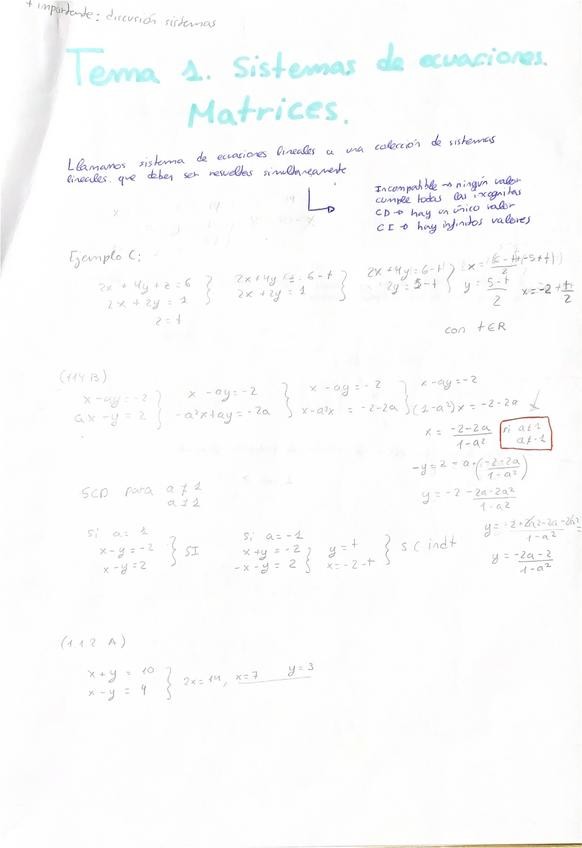 + importante: discusión sistemas
Tema 1. Sistemas de ecuaciones.
Matrices.
Llamamos sistema de ecuaciones lineales a una colección de sistemas
lineales que deben ser resueltos simultaneamente
Incompatible → ningún valor
cumple todas las incognitas
CD → hay un único valor
CI → hay infinitos valores
Ejemplo C:
2x + 4y + z = 6
2x + 2y = 1
z = t
2x + 4y = 6 - t
2x + 2y = 1
2x + 4y = 6 - t
2y = 5 - t
y = 5 - t / 2
x = -2 + t/2
con t ∈ R
(114 B)
x - ay = -2
ax - y = 2
x - ay = -2
-a²x + ay = -2a
x - ay = -2
x - a²x = -2 - 2a
x - ay = -2
(1 - a²)x = -2 - 2a
x = -2 - 2a / 1 - a²
si a ≠ 1
a ≠ -1
-y = 2 - a · (-2 - 2a / 1 - a²)
y = -2 - 2a - 2a² / 1 - a²
SCD para a ≠ 1
si a = 1
x - y = -2
x - y = 2
SI
si a = -1
x + y = -2
-x - y = 2
y = t
x = -2 - t
S C indt
y = -2a - 2 / 1 - a²
(112 A)
x + y = 10
x - y = 4
2x = 14, x = 7 y = 3